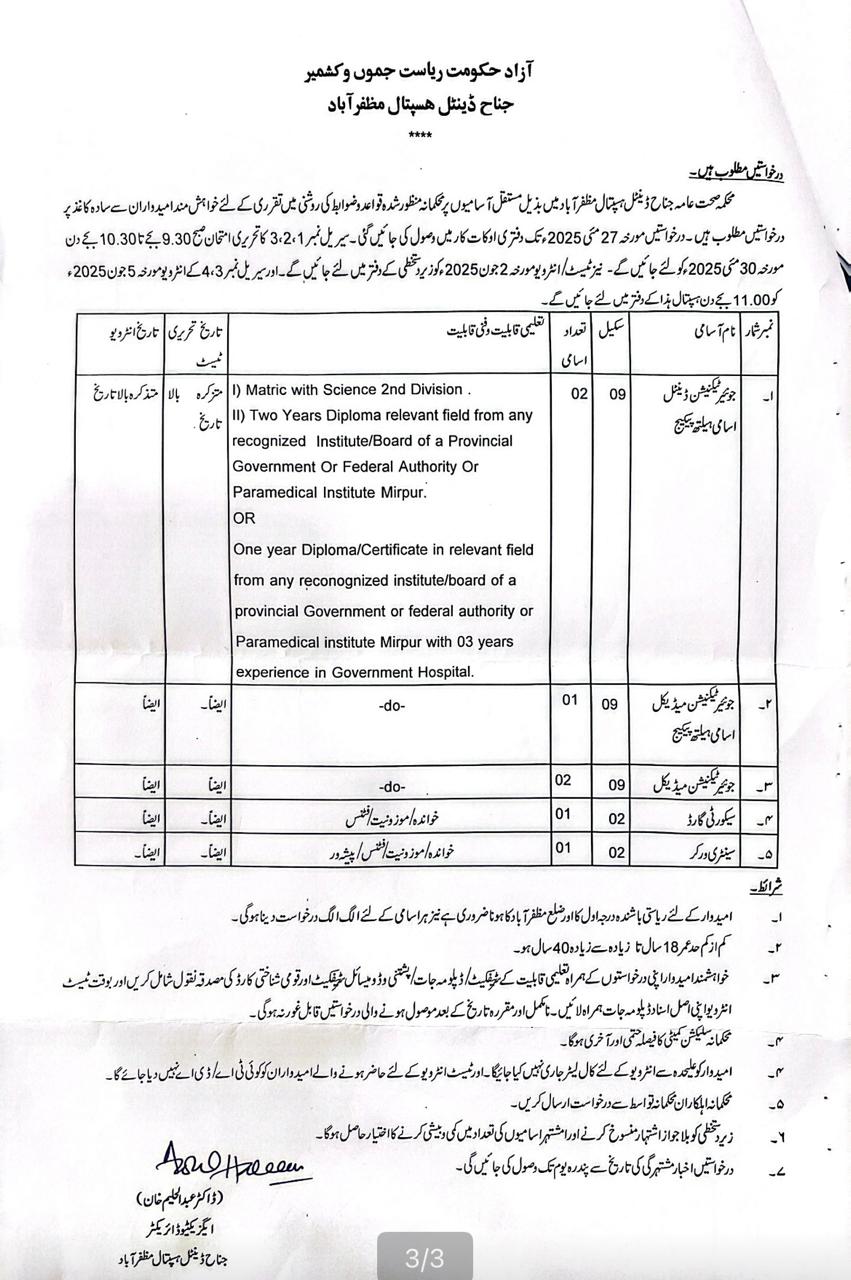 آزاد حکومت ریاست جموں و کشمیر
جناح ڈینٹل ہسپتال مظفرآباد
****
درخواستیں مطلوب ہیں۔
محکمہ صحت عامہ جناح ڈینٹل ہسپتال مظفرآباد میں بذیل مستقل آسامیوں پر محکمانہ منظور شدہ قواعد و ضوابط کی روشنی میں تقرری کے لئے خواہش مند امیدواران سے سادہ کاغذ پر
درخواستیں مطلوب ہیں۔ درخواستیں مورخہ 27 مئی 2025ء تک دفتری اوکات کار میں وصول کی جائیں گئی۔ سیریل نمبر 1، 2، 3 کا تحریری امتحان صبح 9.30 بجے تا 10.30 بجے دن
مورخہ 30 مئی 2025ء کو لئے جائیں گے۔ نیز ٹیسٹ/انٹرویو مورخہ 2 جون 2025ء کو زیر دستخطی کے دفتر میں لئے جائیں گے۔ اور سیریل نمبر 3، 4 کے انٹرویو مورخہ 5 جون 2025ء
کو 11.00 بجے دن ہسپتال ہذا کے دفتر میں لئے جائیں گے۔
نمبر شمار نام آسامی سکیل تعداد اسامی تعلیمی قابلیت و فنی قابلیت تاریخ تحریری ٹیسٹ تاریخ انٹرویو
۱۔ جونیئر ٹیکنیشن ڈینٹل اسامی ہیلتھ پیکیج 09 02
I) Matric with Science 2nd Division .
II) Two Years Diploma relevant field from any
recognized Institute/Board of a Provincial
Government Or Federal Authority Or
Paramedical Institute Mirpur.
OR
One year Diploma/Certificate in relevant field
from any reconognized institute/board of a
provincial Government or federal authority or
Paramedical institute Mirpur with 03 years
experience in Government Hospital.
متزکرہ بالا تاریخ. متذکرہ بالا تاریخ
۲۔ جونیئر ٹیکنیشن میڈیکل اسامی ہیلتھ پیکیج 09 01 -do- ایضاً۔ ایضاً
۳۔ جونیئر ٹیکنیشن میڈیکل 09 02 -do- ایضاً ایضاً
۴۔ سیکورٹی گارڈ 02 01 خواندہ/موزونیت/فٹنس ایضاً۔ ایضاً
۵۔ سینٹری ورکر 02 01 خواندہ/موزونیت/فٹنس/پیشہ ور ایضاً۔ ایضاً۔
شرائط۔
۱۔ امیدوار کے لئے ریاستی باشندہ درجہ اول کا اور ضلع مظفرآباد کا ہونا ضروری ہے نیز ہر اسامی کے لئے الگ الگ درخواست دینا ہوگی۔
۲۔ کم از کم حد عمر 18 سال تا زیادہ سے زیادہ 40 سال ہو۔
۳۔ خواہشمند امیدوار اپنی درخواستوں کے ہمراہ تعلیمی قابلیت کے سرٹیفکیٹ/ڈپلومہ جات/پشتنی و ڈومیسائل سرٹیفکیٹ اور قومی شناختی کارڈ کی مصدقہ نقول شامل کریں اور بوقت ٹیسٹ
انٹرویو اپنی اصل اسناد ڈپلومہ جات ہمراہ لائیں۔ نامکمل اور مقررہ تاریخ کے بعد موصول ہونے والی درخواستیں قابل غور نہ ہوگی۔
۴۔ محکمانہ سلیکشن کمیٹی کا فیصلہ حتمی اور آخری ہوگا۔
۴۔ امیدوار کو علیحدہ سے انٹرویو کے لئے کال لیٹر جاری نہیں کیا جائیگا۔ اور ٹیسٹ انٹرویو کے لئے حاضر ہونے والے امیدواران کو کوئی ٹی اے/ڈی اے نہیں دیا جائے گا۔
۵۔ محکمانہ اہلکاران محکمانہ تواسط سے درخواست ارسال کریں۔
۶۔ زیر دستخطی کو بلا جواز اشتہار منسوخ کرنے اور مشتہر اسامیوں کی تعداد میں کمی و بیشی کرنے کا اختیار حاصل ہوگا۔
۷۔ درخواستیں اخبار مشتہرگی کی تاریخ سے پندرہ یوم تک وصول کی جائیں گی۔
(ڈاکٹر عبدالحلیم خان)
ایگزیکٹو ڈائریکٹر
جناح ڈینٹل ہسپتال مظفرآباد
3/3